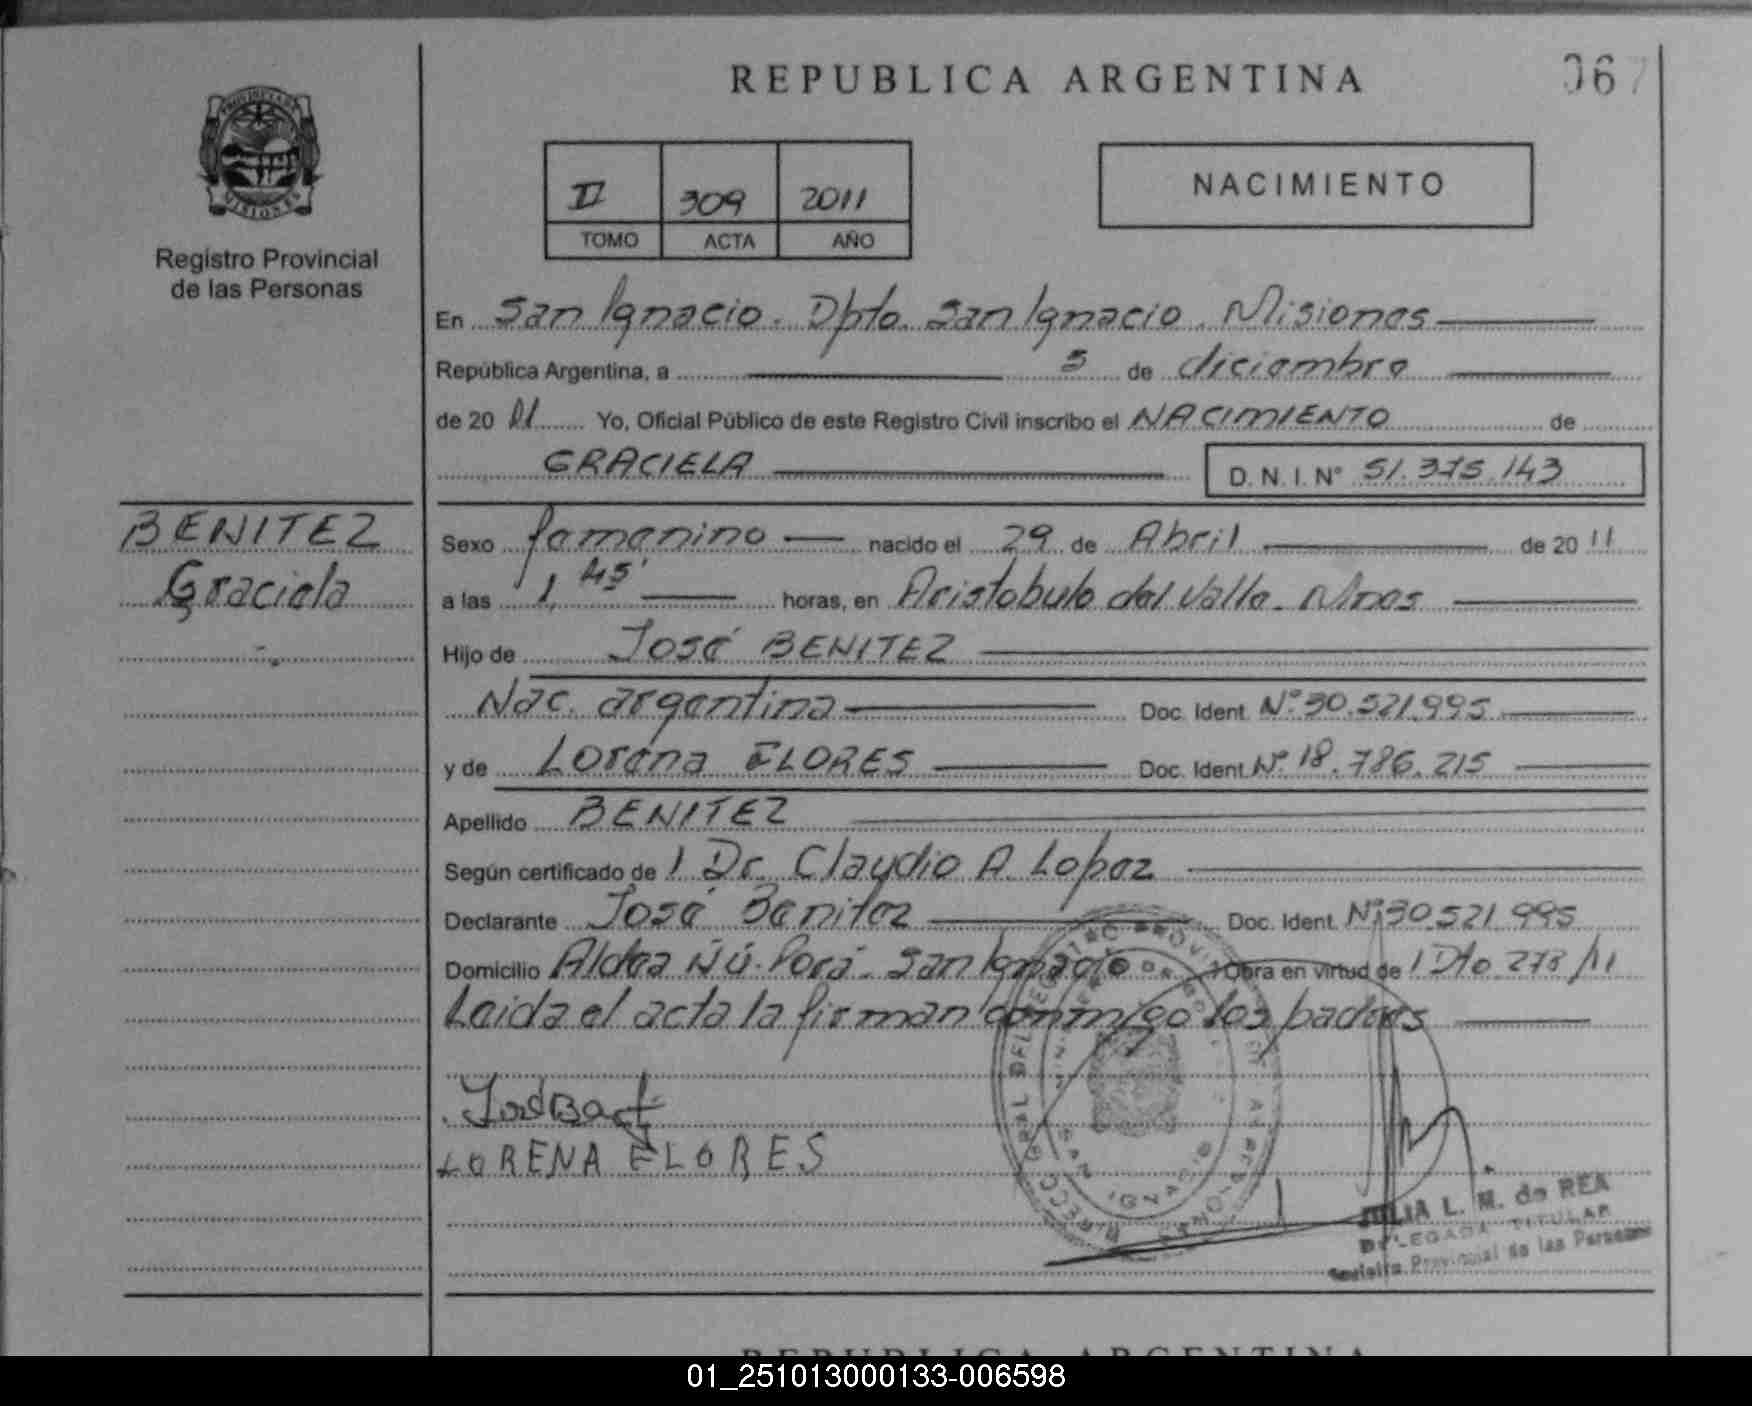 REPUBLICA ARGENTINA
067
PROVINCIA DE
MISIONES
Registro Provincial
de las Personas
II 309 2011
TOMO ACTA AÑO
NACIMIENTO
En San Ignacio. Dpto. San Ignacio. Misiones
República Argentina, a 5 de diciembre
de 20 11 Yo, Oficial Público de este Registro Civil inscribo el NACIMIENTO de
GRACIELA D.N.I. N° 51.375.143
BENITEZ
Graciela
Sexo femenino nacido el 29 de Abril de 20 11
a las 1,45' horas, en Aristobulo del Valle. Mnes
Hijo de José BENITEZ
Nac. argentina Doc. Ident. N° 30.521.995
y de Lorena FLORES Doc. Ident. N° 18.786.215
Apellido BENITEZ
Según certificado de / Dr. Claudio A. Lopez
Declarante José Benitez Doc. Ident. N° 30.521.995
Domicilio Aldea Ñú-Porá San Ignacio Obra en virtud de / Dto 278/11
Leida el acta la firman conmigo los padres
LORENA FLORES
JULIA L. M. de REA
DELEGADA TITULAR
Registro Provincial de las Personas
REPUBLICA ARGENTINA
01_251013000133-006598